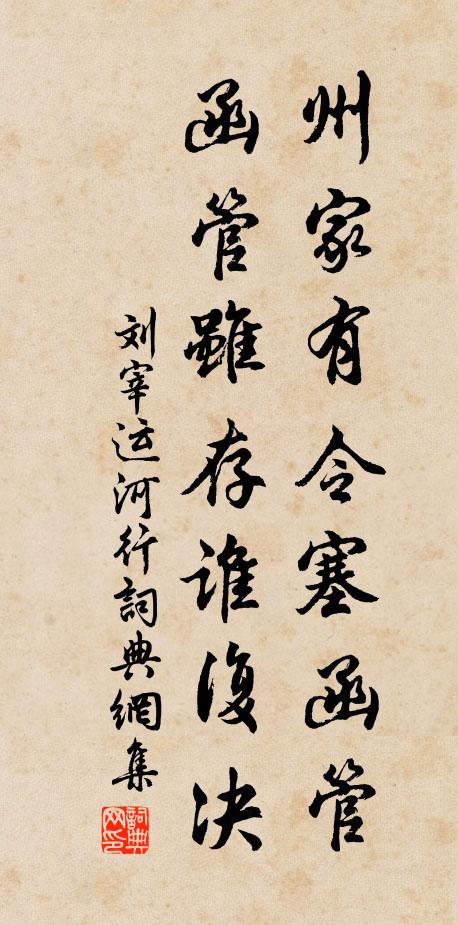 州家有令塞函管
函管雖存誰復决
刘宰运河行詞典網集
詞典网印